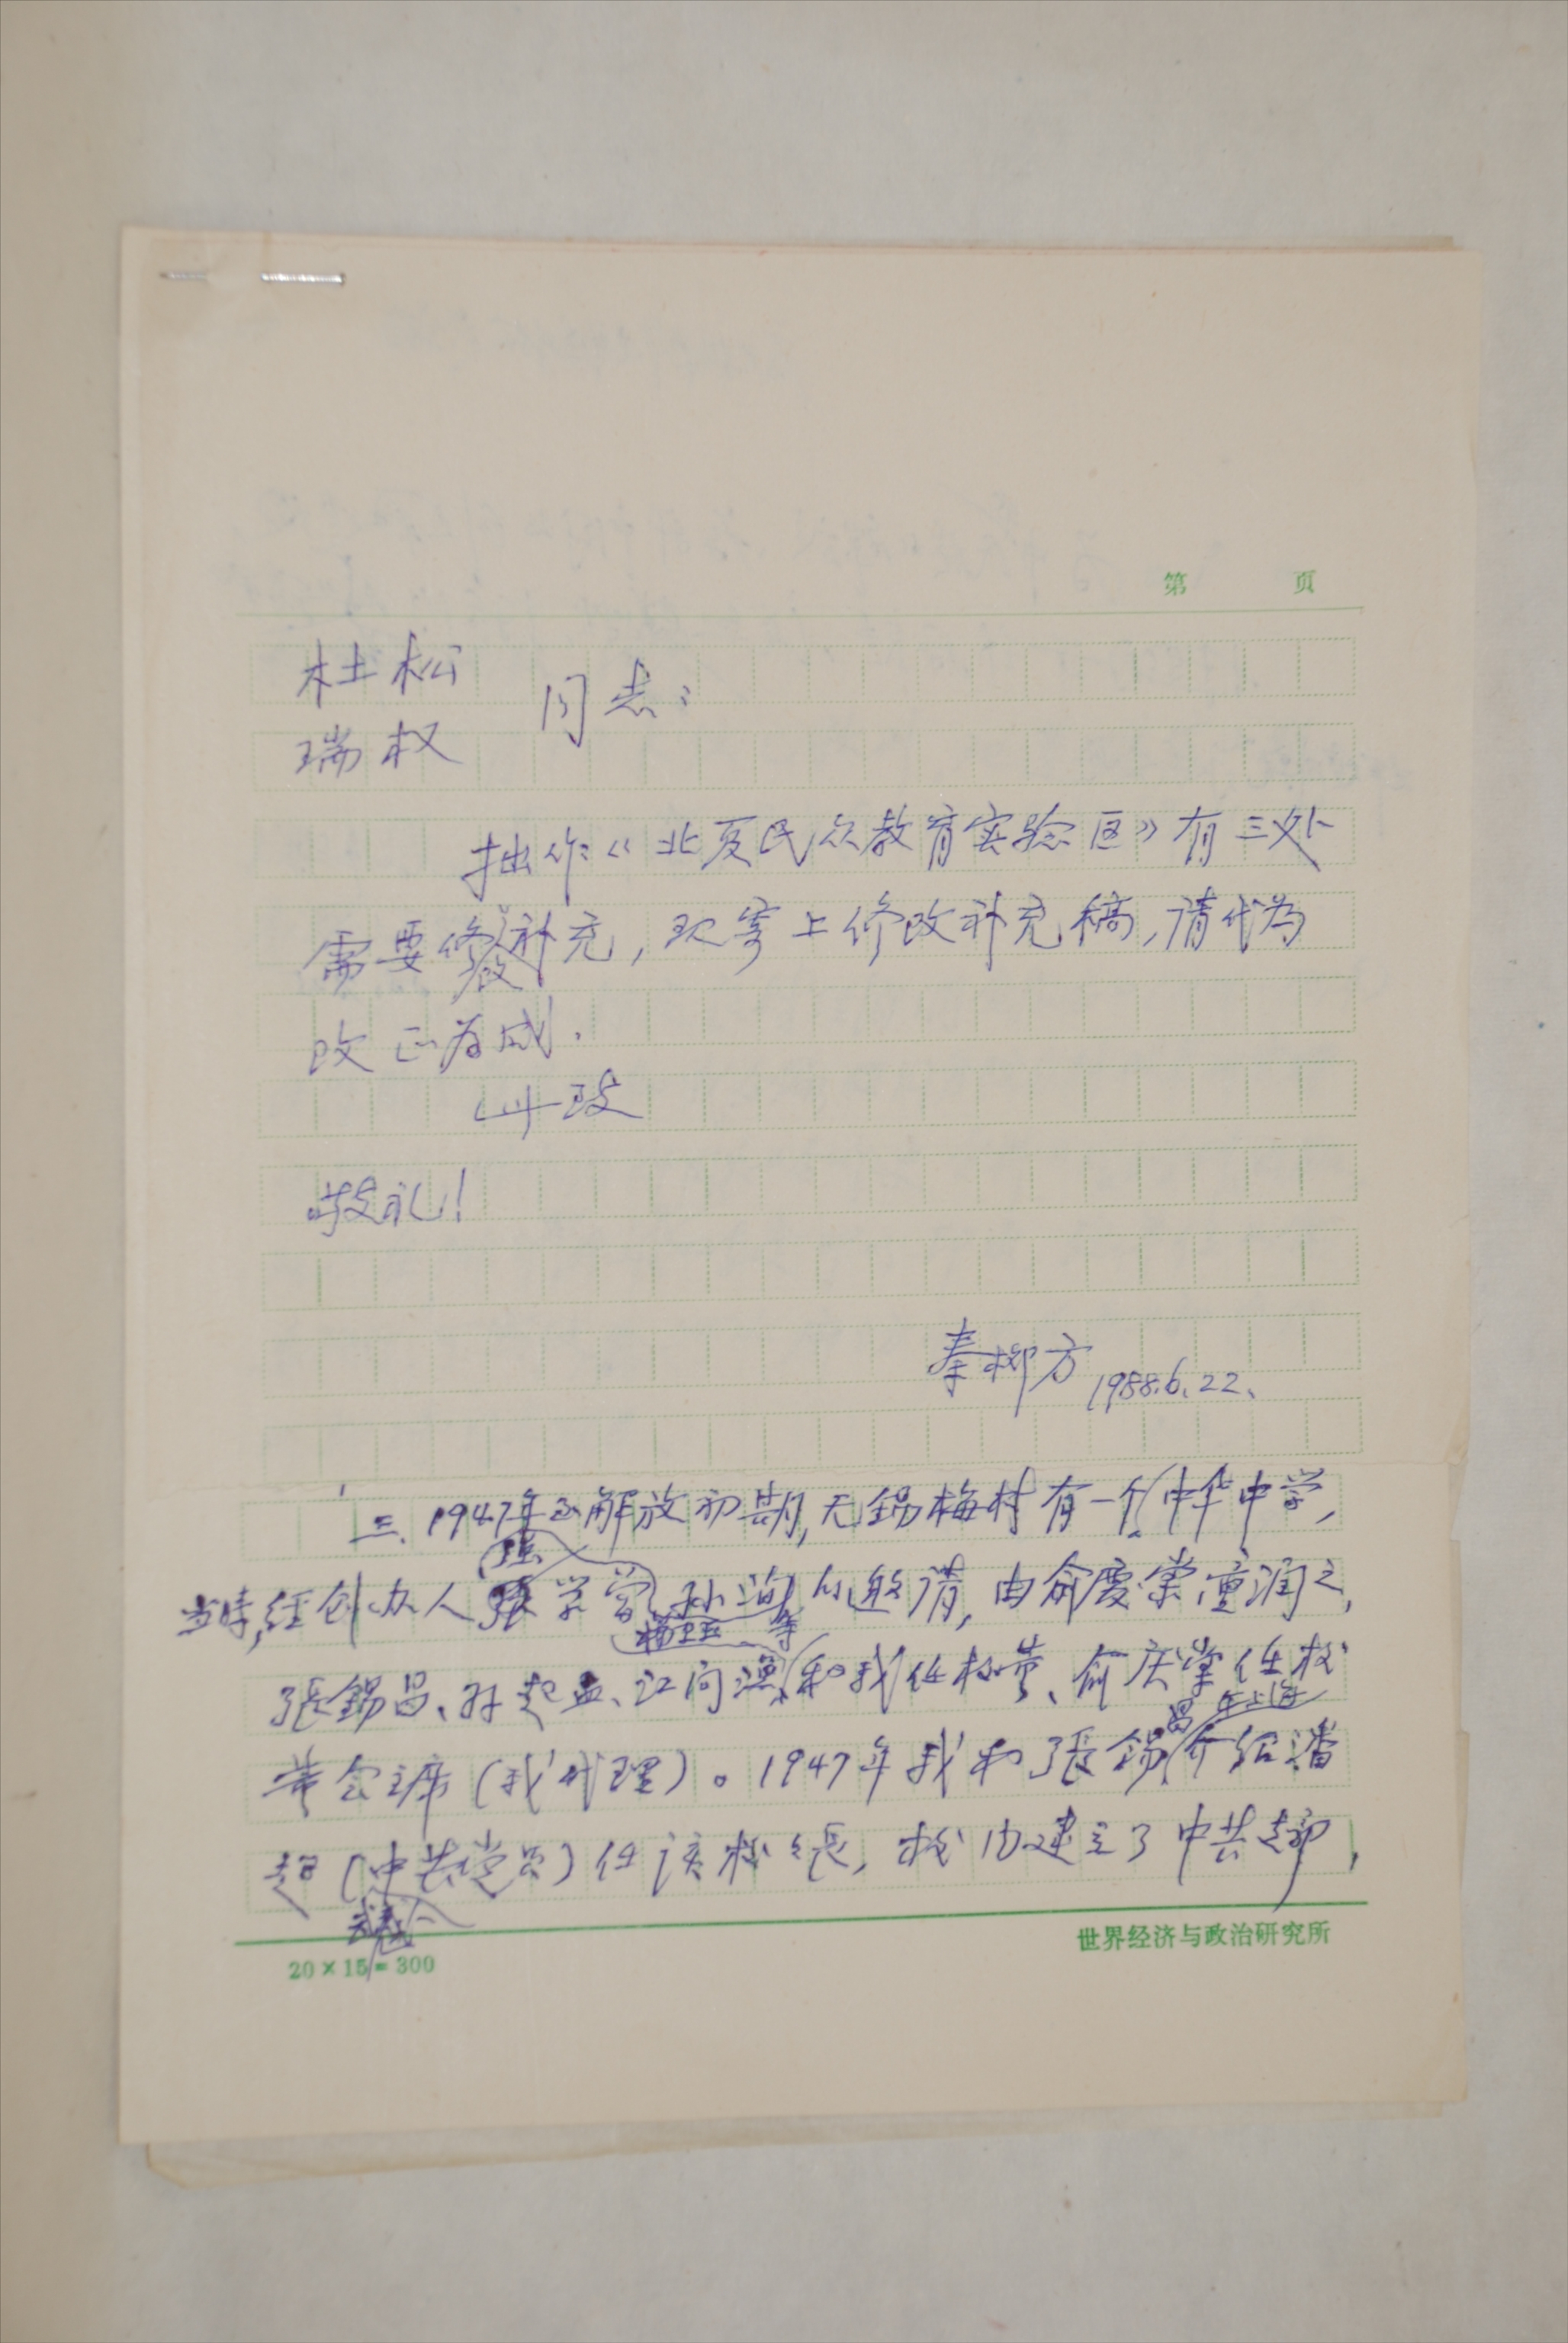 第 页
杜松
瑞权 同志：
拙作《北夏民众教育实验区》有三处
需要修改补充，现寄上修改补充稿，请代为
改正为感．
此致
敬礼！
秦柳方 1988.6.22、
三、1947年至解放初期，无锡梅村有一个中华中学，
当时，经创办人 学 、孙洵 等的邀请，由俞庆棠、童润之、
張錫昌、孙起孟、江问渔和我任校董、俞庆棠任校
董会主席（我代理）。1947年我和張錫昌在上海介绍潘
超（中共党员）任该校校長，校内建立了中共支部，
世界经济与政治研究所
20×15=300